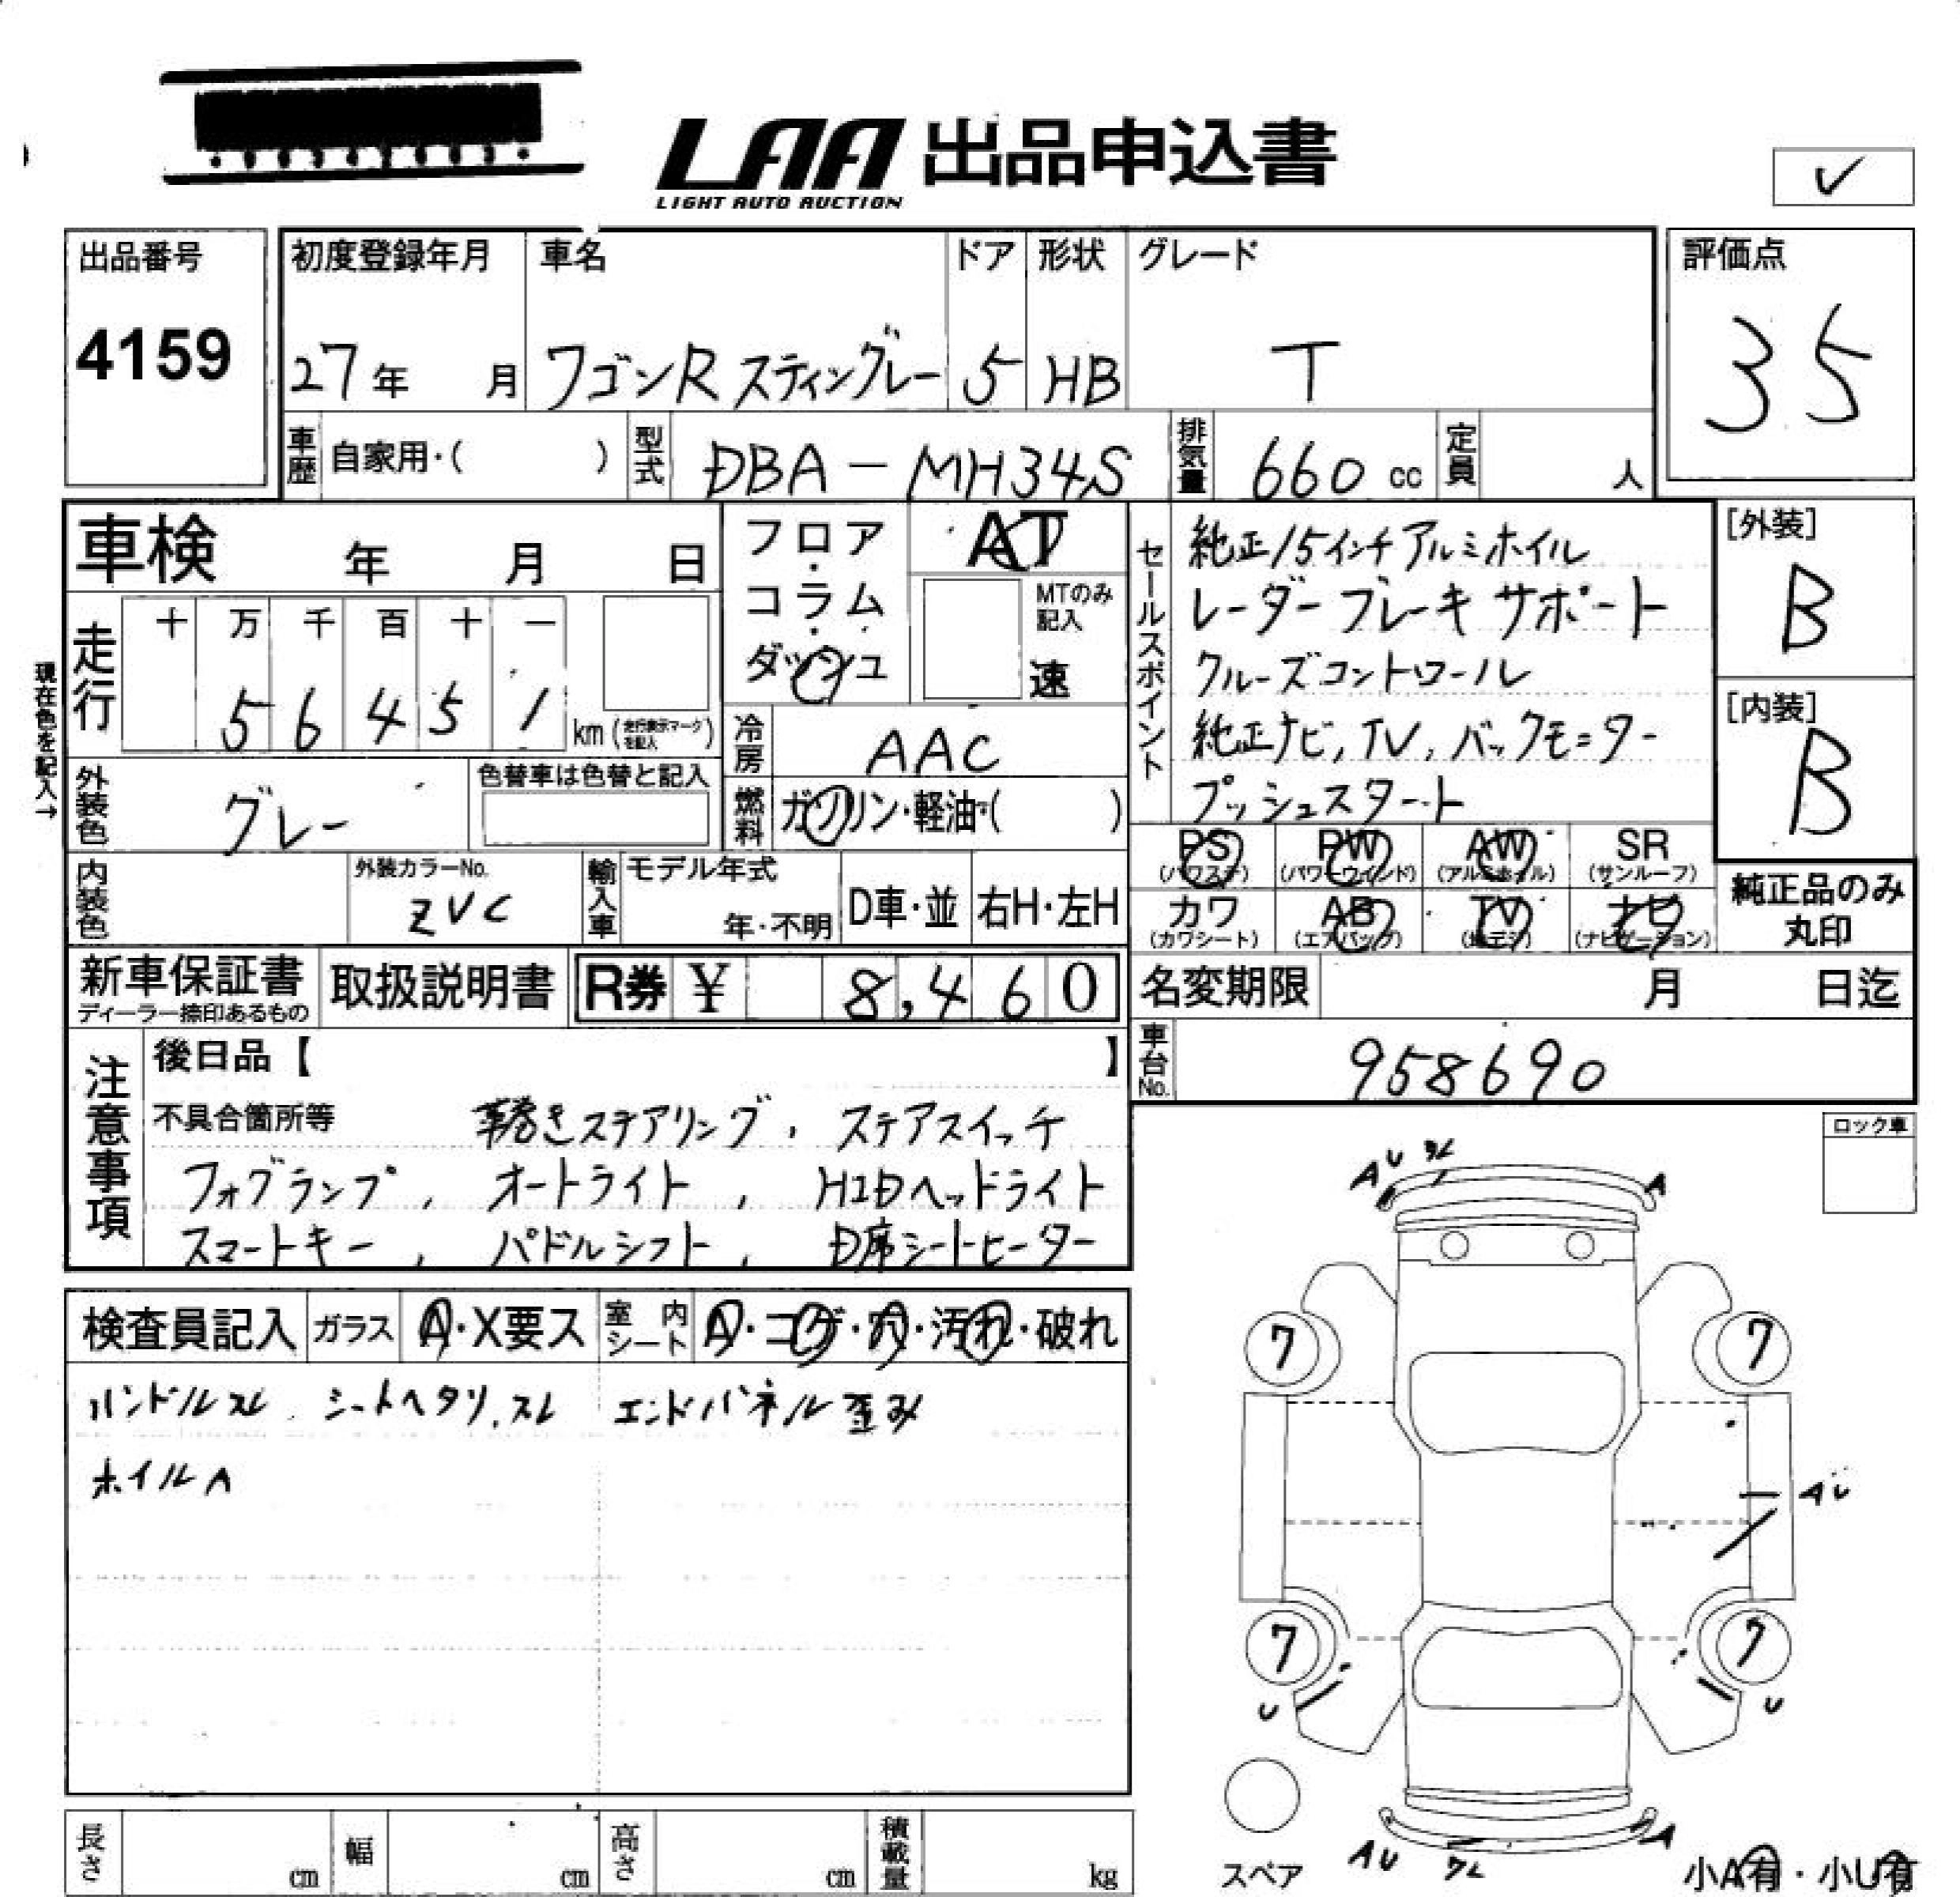 LAA 出品申込書
LIGHT AUTO AUCTION
✓
出品番号
4159
初度登録年月
27年 月
車名
ワゴンR スティングレー
ドア
5
形状
HB
グレード
T
評価点
35
車歴 自家用・( )
型式 DBA-MH34S
排気量 660 cc
定員 人
車検 年 月 日
フロア・コラム・ダッシュ
AT
MTのみ記入
速
セールスポイント
純正15インチアルミホイル
レーダーブレーキサポート
クルーズコントロール
純正ナビ, TV, バックモニター
プッシュスタート
[外装]
B
[内装]
B
現在色を記入→
走行
十 万 千 百 十 一
5 6 4 5 1
km (走行表示マークを記入)
冷房 AAC
外装色 グレー
色替車は色替と記入
燃料 ガソリン・軽油・( )
内装色
外装カラーNo.
ZVC
輸入車
モデル年式
年・不明
D車・並
右H・左H
PS (パワステ)
PW (パワーウインド)
AW (アルミホイル)
SR (サンルーフ)
カワ (カワシート)
AB (エアバッグ)
TV (地デジ)
ナビ (ナビゲーション)
純正品のみ
丸印
新車保証書
ディーラー捺印あるもの
取扱説明書
R券 ¥ 8,460
名変期限 月 日迄
車台No. 958690
注意事項
後日品【 】
不具合箇所等 革巻きステアリング, ステアスイッチ
フォグランプ, オートライト, HIDヘッドライト
スマートキー, パドルシフト, D席シートヒーター
ロック車
検査員記入
ガラス A・X要ス
室内シート A・コゲ・穴・汚れ・破れ
ハンドルスレ シートヘタリ, スレ エンドパネル歪み
ホイルA
AU ワレ A
7 7
AU
7 7
U U
スペア
AU ワレ A
小A有・小U有
長さ cm
幅 cm
高さ cm
積載量 kg